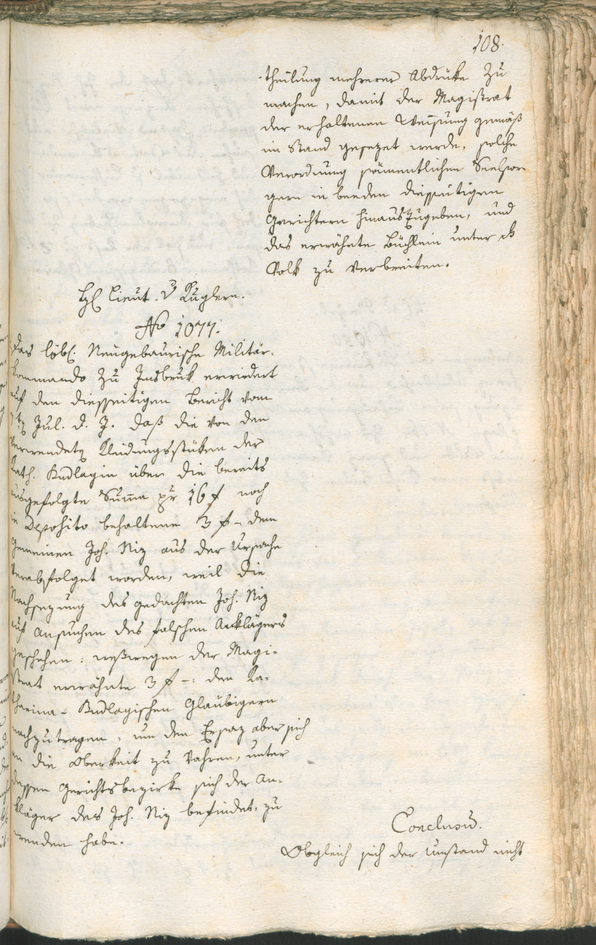 108.
theilung mehrerer Abdrüke zu
machen, damit der Magistrat
der erhaltenen Weisung gemäß
im Stand gesezet werde, solche
Verordnung sämentlichen Seelsor
gern in beeden diesseitigen
Gerichtern hinauszugeben, und
das erwähnte Büchlein unter
Volk zu verbreiten.
Lieut. v Küglern.
No 1077.
Das löbl. Neugebaurische Militär-
Kommando zu Insbruk erwiedert
auf den diesseitigen Bericht vom
Jul. d. J. daß die von den
verwendeten Kleidungsstüken der
Kath. über die bereits
ausgefolgte Summa pr 16 f noch
in Deposito behaltene 3 f – dem
Gemeinen Joh. Niz aus der Ursache
verabfolget worden, weil die
Nachsezung des gedachten Joh. Niz
auf Ansuchen des falschen Anklägers
geschehen: weßwegen der Magi-
strat erwähnte 3 f –: den Ka-
tharina Gläubigern
nachzutragen, um den Ersaz aber sich
an die Oberkeit zu , unter
dessen Gerichtsbezirke sich der An-
kläger des Joh. Niz befindet, zu
wenden habe.
Conclusum.
Obgleich sich der Umstand nicht